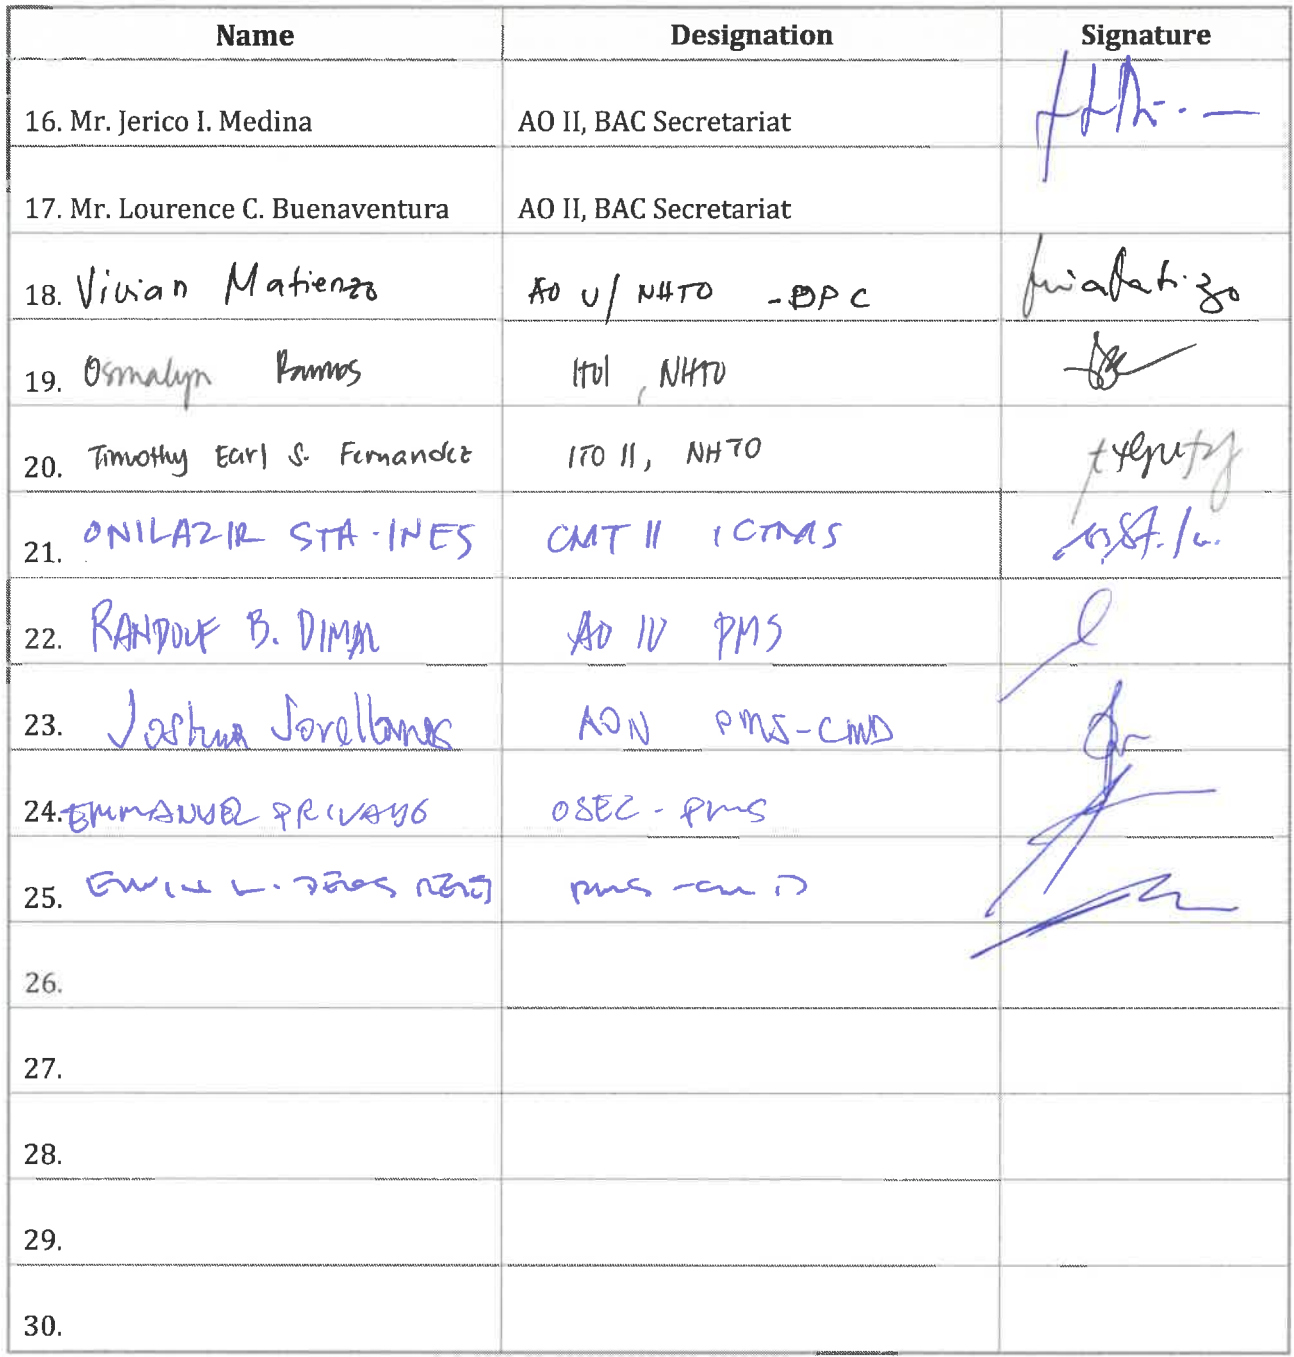 Name Designation Signature
16. Mr. Jerico I. Medina AO II, BAC Secretariat
17. Mr. Lourence C. Buenaventura AO II, BAC Secretariat
18. Vivian Matienzo AO V/ NHTO -DPC
19. Osmalyn Ramos ITO1, NHTO
20. Timothy Earl S. Fernandez ITO II, NHTO
21. ONILAZIR STA-INES CMT II ICTMS
22. B. AO IV PMS
23. Joshua Sorellanos PMS-CMD
24. EMMANUEL PRIVADO OSEC-PMS
25. PMS-CMD
26.
27.
28.
29.
30.